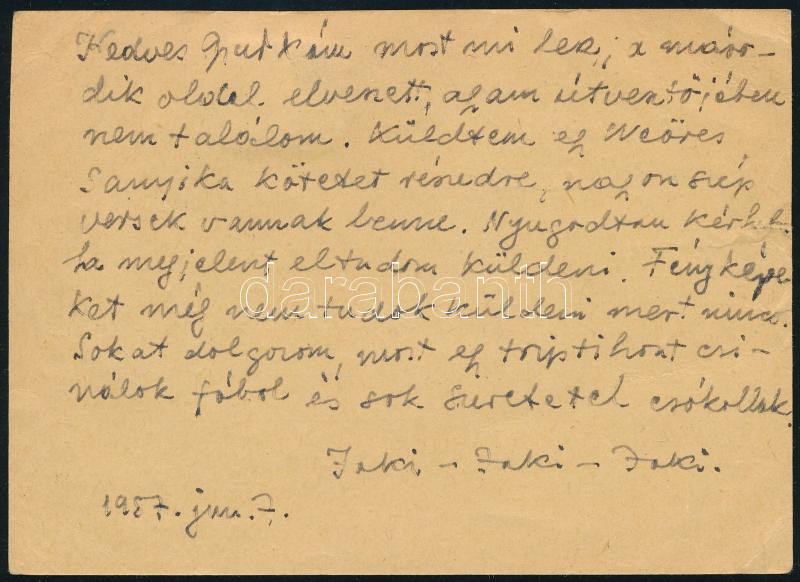 Kedves most mi lesz, a máso-
dik oldal elveszett, agyam útvesztőjében
nem találom. Küldtem egy Weöres
Sanyika kötetet részedre, nagyon szép
versek vannak benne. Nyugodtan
ha megjelent eltudom küldeni. Fényképe
ket még nem tudok küldeni mert nincs.
Sokat dolgozom, most egy triptihont csi-
nálok fából és sok szeretetel csókollak
Jaki - Jaki - Jaki.
1957. jun. 7.
darabanth